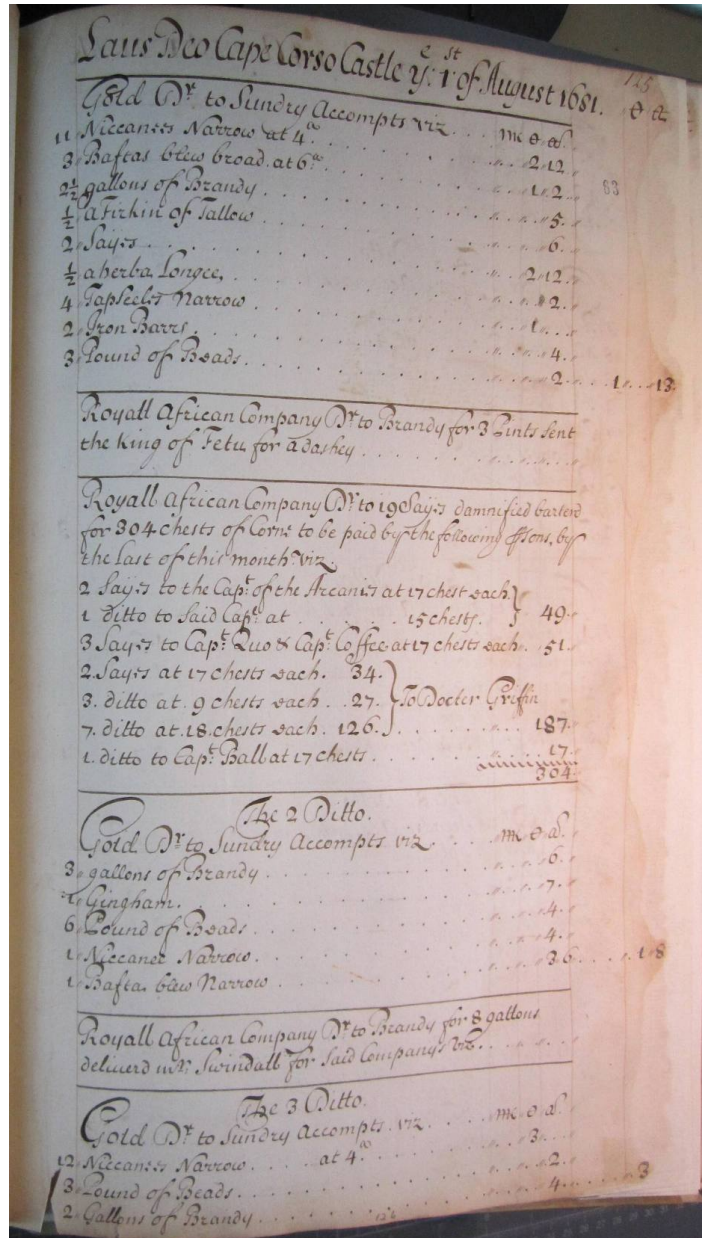 Laus Deo Cape Corso Castle yᵉ: 1ˢᵗ of August 1681.
125
Gold Dʳ to Sundry Accompts viz
11 Niccanees Narrow at 4ᵃ 2 12
3 Baftas blew broad at 6ᵃ 1 2
83
2½ gallons of Brandy 5
½ a Firkin of Tallow 6
2 Sayes 2 12
½ a herba Longee 2
4 Tapseeles Narrow 1
2 Iron Barrs 4
3 Pound of Beads 2 1 13
Royall African Company Dʳ to Brandy for 3 Pints sent
the King of Fetu for a dashey
Royall African Company Dʳ to 19 Sayes damnified barterd
for 304 chests of Corne to be paid by the following ꝑsons, by
the last of this month viz
2 Sayes to the Capᵗ of the Arcanies at 17 chest each }
1 ditto to Said Capᵗ at 15 chests. } 49
3 Sayes to Capᵗ Quo & Capᵗ Coffee at 17 chests each 51
2 Sayes at 17 chests each. 34.
3. ditto at 9 chests each 27. } To Docter Griffin
7. ditto at 18 chests each. 126. 187
1. ditto to Capᵗ Ball at 17 chests 17
304
The 2 Ditto.
Gold Dʳ to Sundry Accompts viz
3 gallons of Brandy 6
1 Gingham 7
6 Pound of Beads 4
1 Niccanee Narrow 4
1 Bafta blew Narrow 3 6 1 8
Royall African Company Dʳ to Brandy for 8 gallons
deliverd mʳ Swindall for said Companys
The 3 Ditto.
Gold Dʳ to Sundry Accompts viz
12 Niccanees Narrow at 4ᵃ 3
3 Pound of Beads 2
2 Gallons of Brandy 4 3